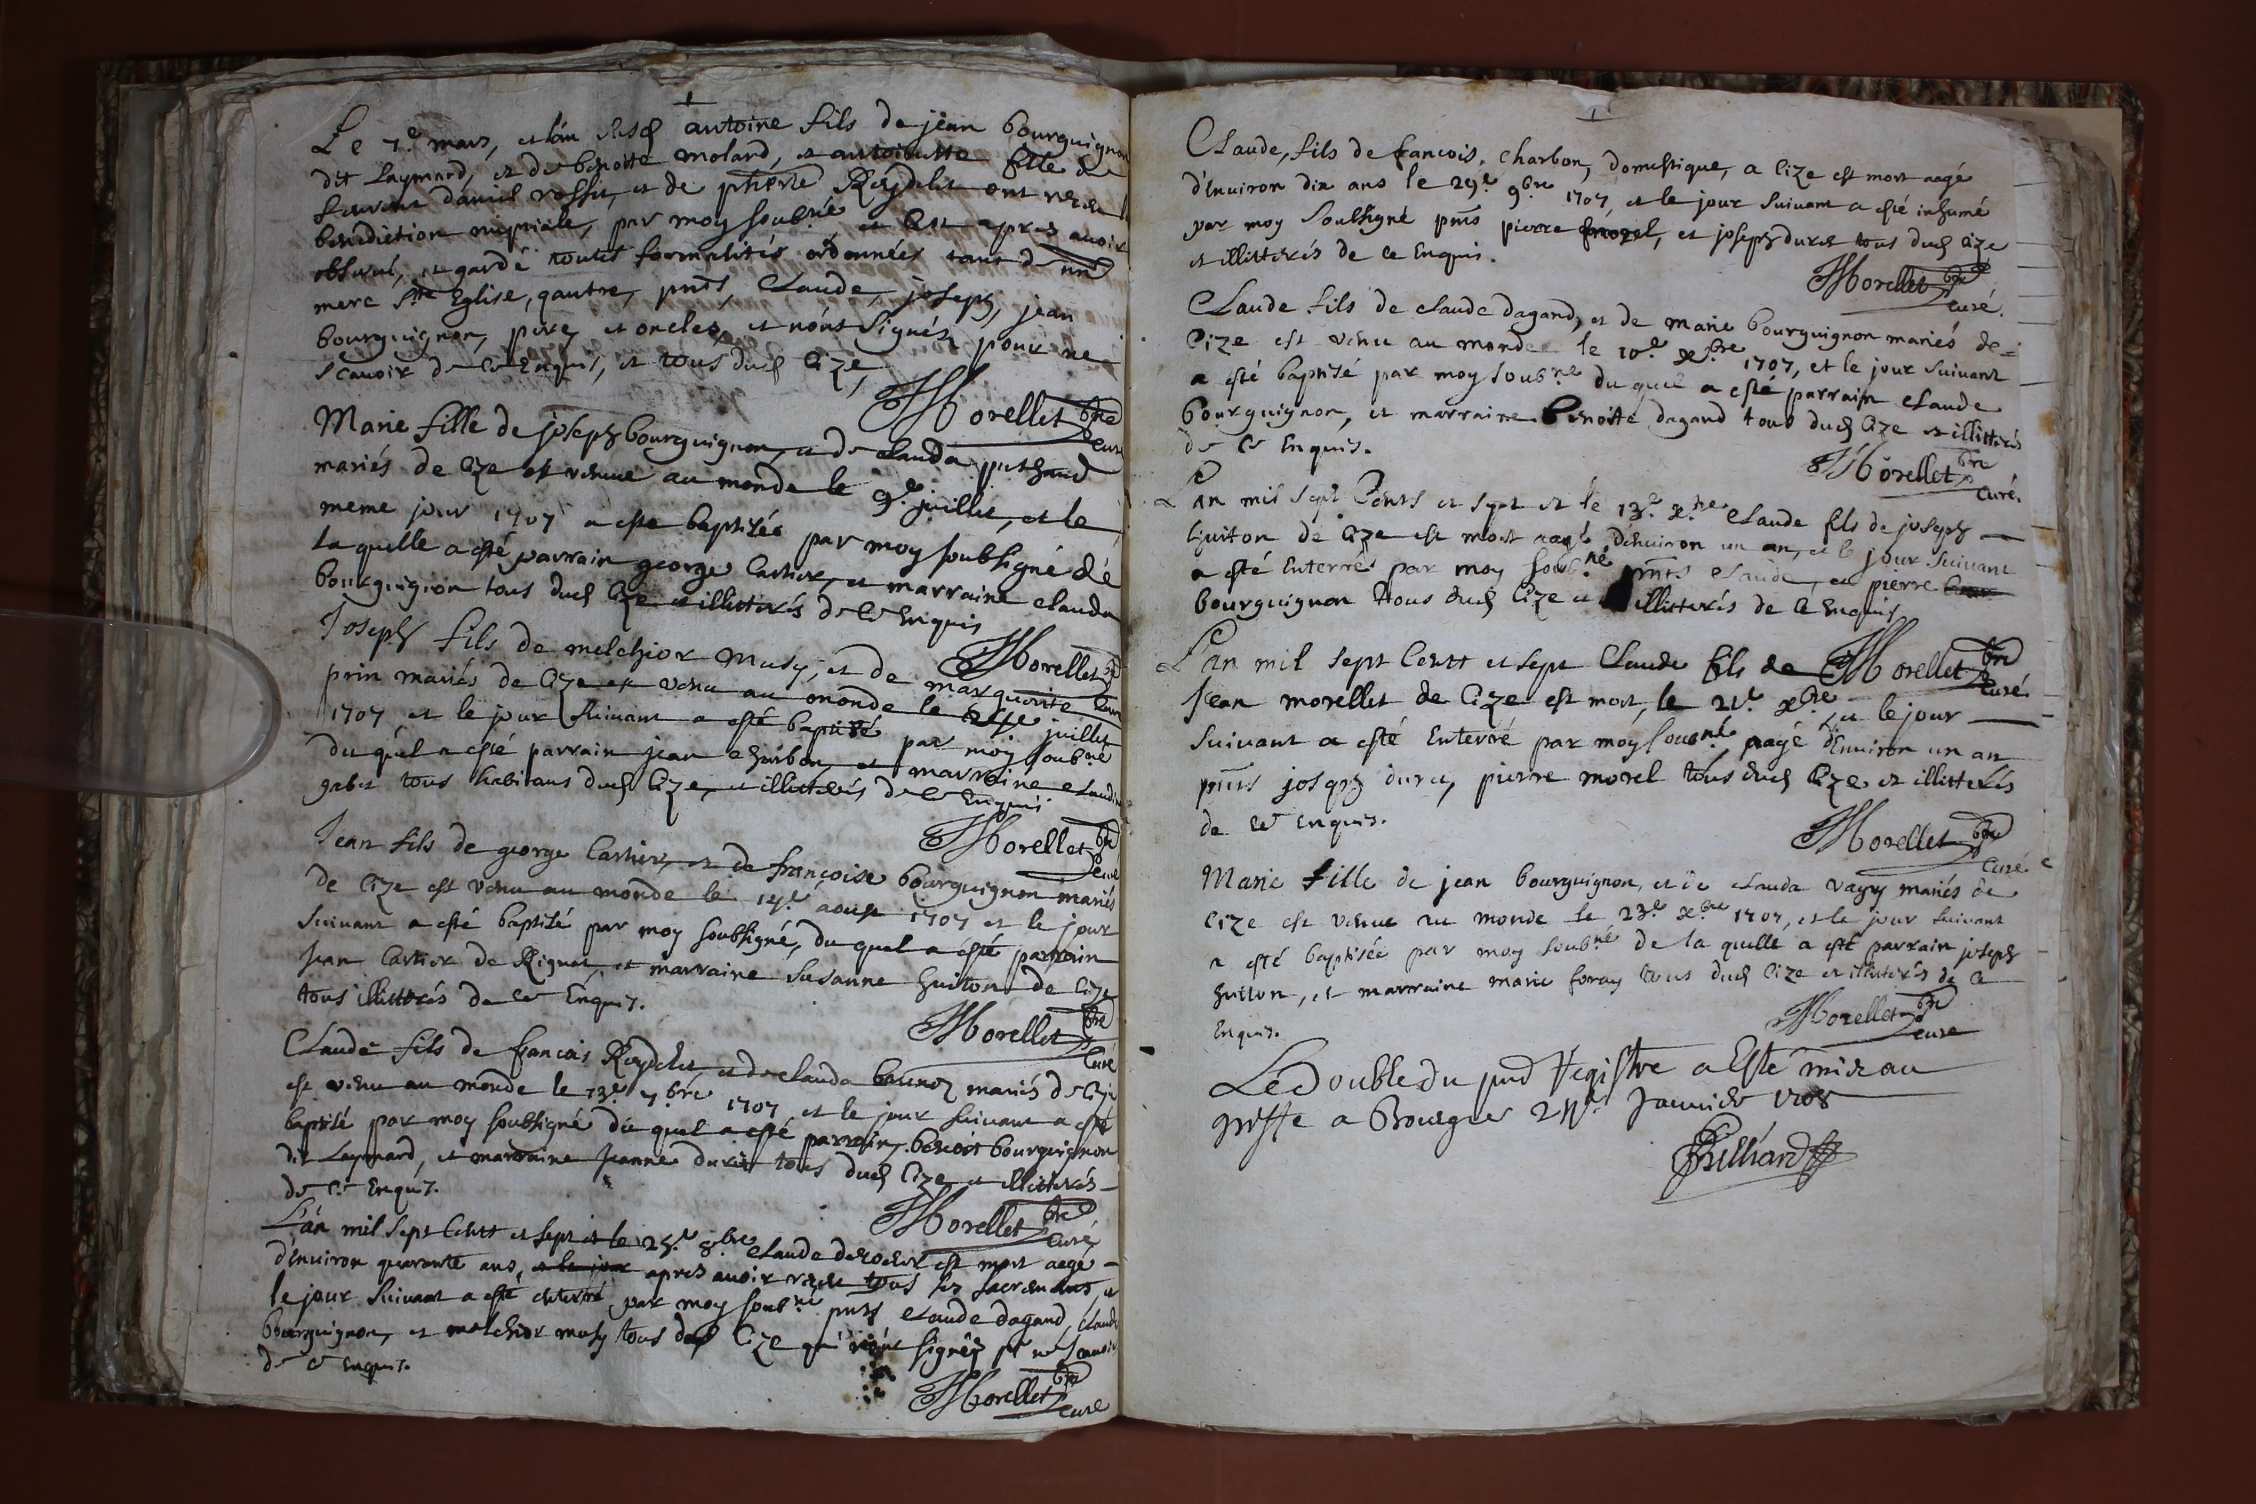 Le 7.e mars, et l'an susd antoine fils de jean bourguignon
dit Laymard, et de benoite molard, et antoinette fille de
daniel et de Reydelet ont receu
benediction nuptiale, par moy soubné et apres avoir
observé, et gardé toutes formalités ordonnées tant de
mere Ste Eglise, qautre, pnts, Claude, joseph, jean
bourguignon, pere, et oncles, et n'ont signés, pour ne
scavoir de ce Enquis, et tous dud Cize,
Morellet pbre
curé
Marie fille de joseph bourguignon, et de Clauda puthaud
mariés de Cize est venue au monde le 9.e juillet, et le
meme jour 1707 a esté baptisée par moy soubsigné de
la quelle a esté parrain george Cartier, et marraine Clauda
bourguignon tous dud Cize et illitterés de ce Enquis
Morellet pbre
curé
Joseph fils de melchior Musy, et de marguerite
prin mariés de Cize est venu au monde le juillet
1707 et le jour suivant a esté baptisé par moy soubné
du quel a esté parrain jean Charbon, et marraine Claudine
gabet tous habitans dud Cize, et illitterés de ce Enquis
Morellet pbre
curé
Jean fils de george Cartier, et de françoise bourguignon mariés
de Cize est venu au monde le 14.e aoust 1707 et le jour
suivant a esté baptisé par moy soubsigné, du quel a esté parrain
jean Cartier de Rignat, et marraine Susanne huiton de Cize
tous illitterés de ce Enquis.
Morellet pbre
Curé
Claude fils de francois Reydelet, et de Clauda brunoz mariés de Cize
est venu au monde le 13.e 7.bre 1707 et le jour suivant a esté
baptisé par moy soubsigné du quel a esté parrain, benoist bourguignon
dit Laymard, et marraine jeanne duret tous dud Cize et illitterés
de ce Enquis.
Morellet pbre
Curé
L'an mil sept Centt et sept et le 25.e 8.bre Claude est mort aagé
d'Environ quarante ans, et le jour apres avoir receu tous les sacremants, et
le jour suivant a esté enterré par moy soubné pnts Claude dagand, Claude
bourguignon, et melchior musy tous dud Cize qui n'ont signés pr ne scavoir
de ce enquis.
Morellet pbre
curé
Claude, fils de francois Charbon, domestique, a Cize est mort aagé
d'Environ dix ans le 29.e 9bre 1707, et le jour suivant a esté inhumé
par moy Soubsigné pnts pierre morel, et joseph duret tous dud Cize
et illitterés de ce Enquis.
Morellet pbre
curé.
Claude fils de Claude dagand, et de marie bourguignon mariés de
Cize est venu au monde le 10.e xbre 1707, et le jour suivant
a esté baptisé par moy soubné du quel a esté parrain Claude
bourguignon, et marraine benoite dagand tous dud Cize et illitterés
de ce Enquis.
Morellet pbre
Curé.
L'an mil sept Cents et sept et le 13.e xbre Claude fils de joseph
huiton de Cize est mort aagé d'environ un an, et le jour suivant
a esté Enterré par moy soubné pnts Claude, et pierre
bourguignon tous dud Cize et illitterés de ce Enquis
Morellet pbre
Curé
L'an mil sept Centt et sept Claude fils de
Jean morellet de Cize est mort, le 21.e xbre et le jour
suivant a esté Enterré par moy soubné, aagé d'Environ un an
pnts joseph duret, pierre morel tous dud Cize et illitterés
de ce Enquis.
Morellet pbre
Curé
Marie fille de jean bourguignon, et de Clauda vagry mariés de
Cize est venue au monde le 23.e xbre 1707, et le jour suivant
a esté baptisée par moy soubné de la quelle a esté parrain joseph
huiton, et marraine marie foray tous dud Cize et illitterés de ce
Enquis.
Morellet pbre
curé
Le Double du pnt Registre a Esté mis au
greffe a Bourg le Janvier 1708